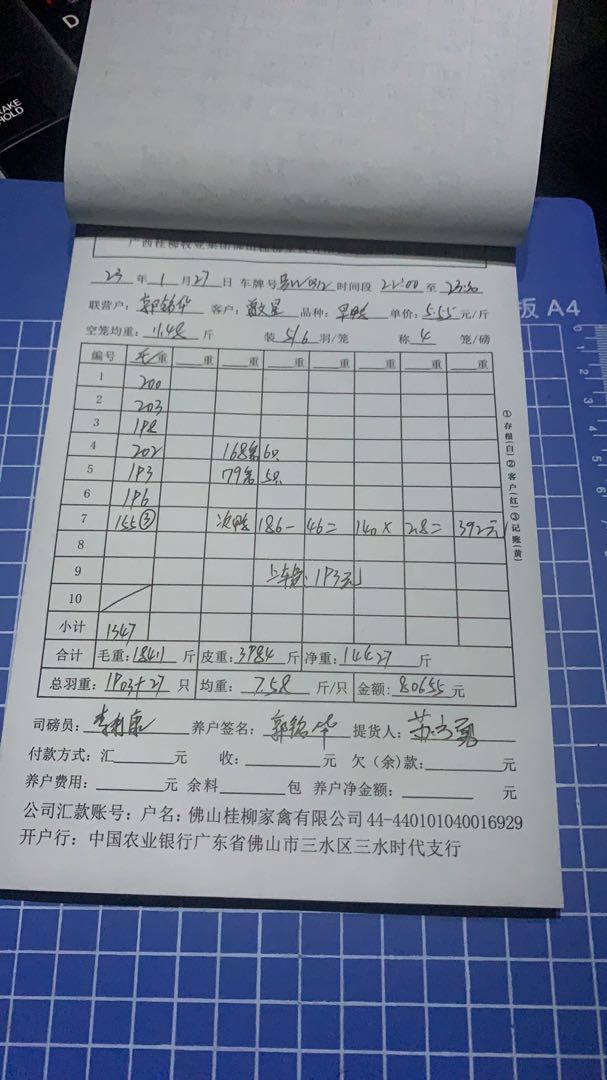 D
HOLD
23 年 1 月 27 日 车牌号 时间段 22:00 至 23:30
联营户: 郭锦华 客户: 品种: 早鸭 单价: 5.55 元/斤
空笼均重: 11.48 斤 装 5/6 羽/笼 称 4 笼/磅
编号 毛重 重 重 重 重 重 重 重
1 200
2 203
3 198
4 202 168笼6只
5 193 79笼5只
6 196
7 155③ 次鸭 186-46=140×2.8=392元
8
9 上车费:193元
10
小计 1347
合计 毛重: 18411 斤 皮重: 3984 斤 净重: 14427 斤
总羽重: 1903+27 只 均重: 7.58 斤/只 金额: 80655 元
司磅员: 李利康 养户签名: 郭锦华 提货人:
付款方式: 汇 元 收: 元 欠(余)款: 元
养户费用: 元 余料 包 养户净金额: 元
公司汇款账号: 户名: 佛山桂柳家禽有限公司 44-440101040016929
开户行: 中国农业银行广东省佛山市三水区三水时代支行
①存根(白)②客户(红)③记账(黄)
板 A4